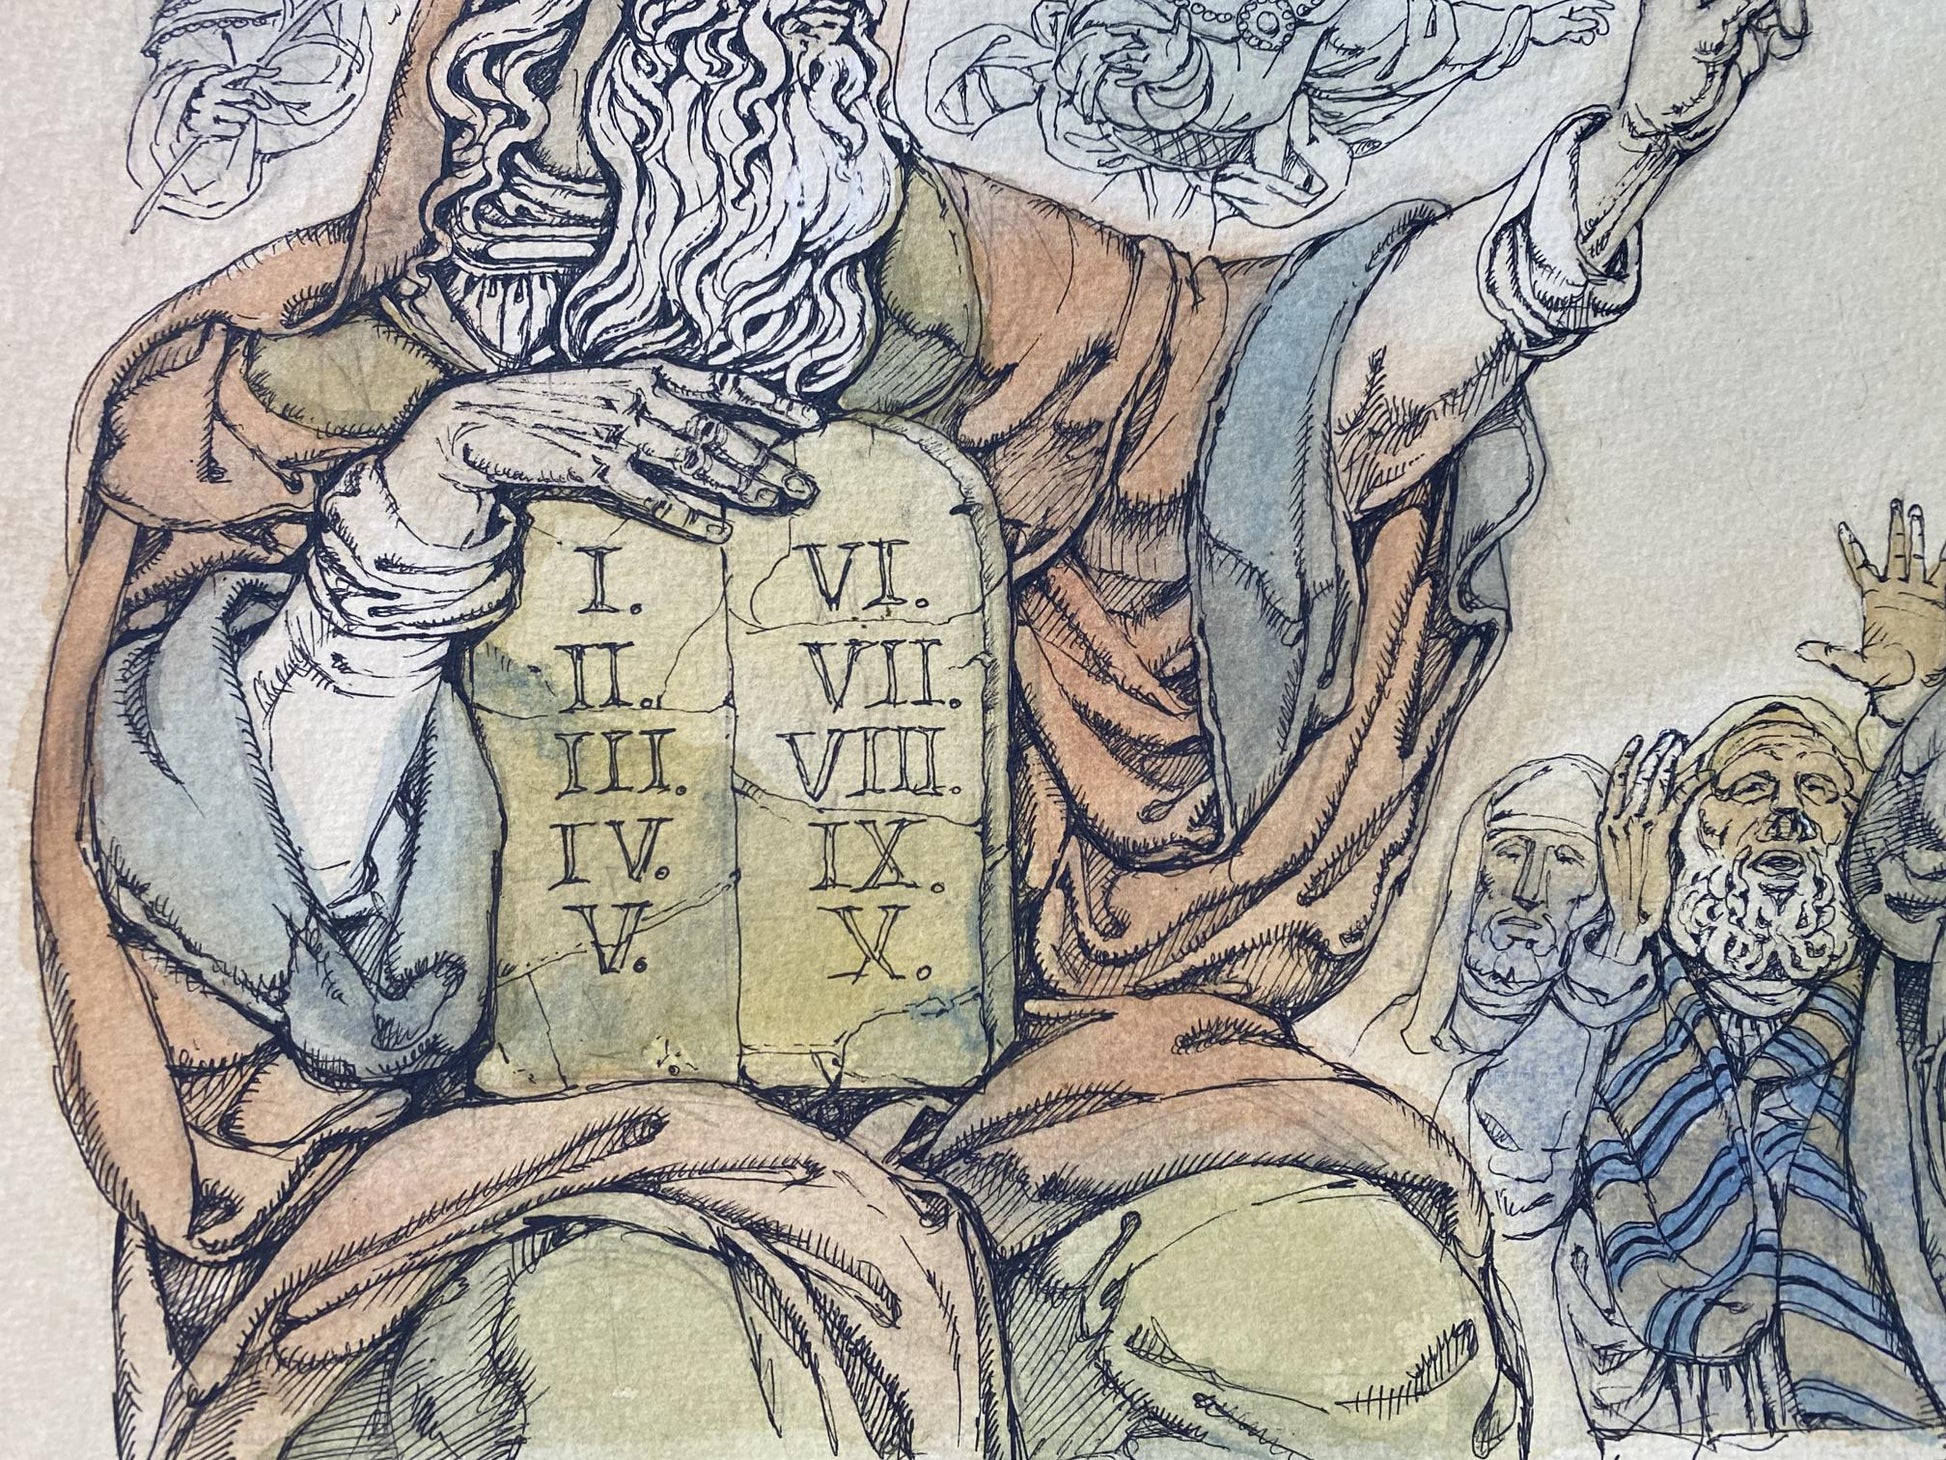 I.
II.
III.
IV.
V.
VI.
VII.
VIII.
IX.
X.